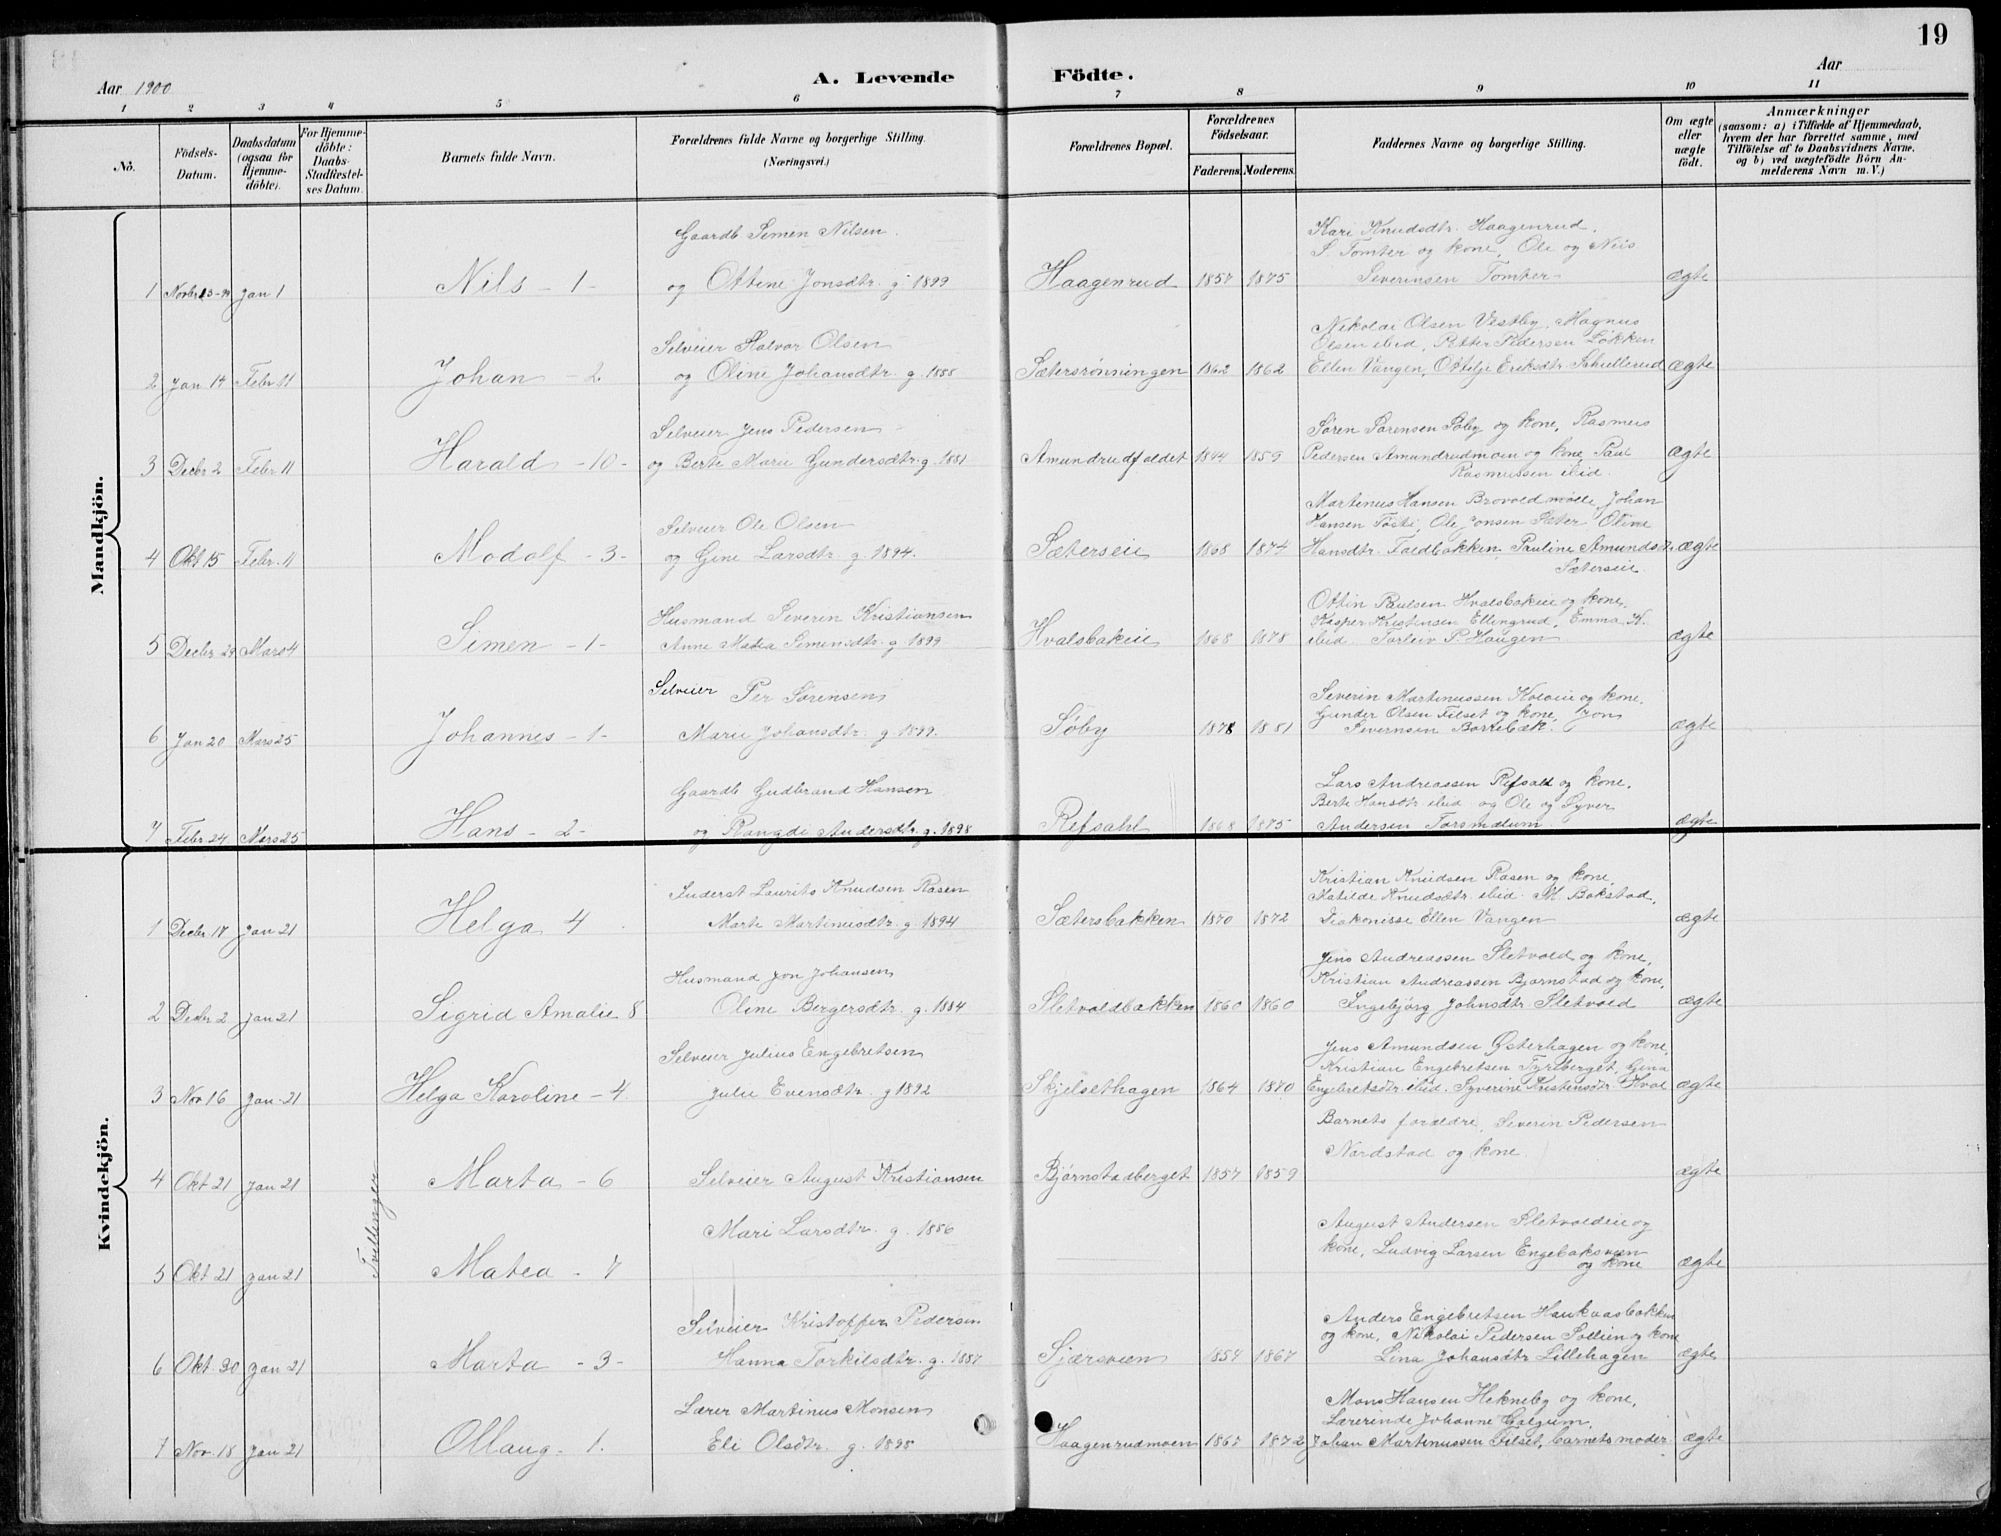 19
Aar 1900
A. Levende Födte.
Aar
1 2 3 4 5 6 7 8 9 10 11
No.
Födsels-Datum.
Daabsdatum (ogsaa for Hjemme-döbte).
For Hjemme-döbte: Daabs-Stadfæstel-ses Datum.
Barnets fulde Navn.
Forældrenes fulde Navne og borgerlige Stilling.
(Næringsvei.)
Forældrenes Bopæl.
Forældrenes Födselsaar.
Faderens. Moderens.
Faddernes Navne og borgerlige Stilling.
Om ægte eller uægte födt.
Anmærkninger
(saasom: a) i Tilfælde af Hjemmedaab,
hvem der har forrettet samme, med
Tilföielse af to Daabsvidners Navne,
og b) ved uægtefödte Börn An-
melderens Navn m. V.)
Mandkjön.
Gaardb Simen Nilsen
Kari Knudsdtr. Haagenrud,
S Tomter og kone, Ole og Nils
1 Novbr 13-99 Jan 1 Nils - 1 - og Ottine Jonsdtr. g. 1899 Haagenrud 1857 1875 Severinsen Tomter ægte
Selveier Halvor Olsen
Nikolai Olsen Vestby, Magnus
Olsen ibid, Petter Pedersen Løkken
2 Jan 14 Febr 11 Johan - 2. og Oline Johansdtr. g. 1888 Sætersrønningen 1862 1862 Ellen Vangen, Ottilje Eriksdtr. ægte
Selveier Jens Pedersen
Søren Sørensen Søby og kone, Rasmus
3 Decbr 2 Febr 11 Harald - 10 - og Berte Marie Gundersdtr. g. 1881 Amundrudfaldet 1844 1859 Pedersen Amundrudmoen og kone Paul ægte
Rasmussen ibid.
Selveier Ole Olsen
Martinus Hansen Brovold mølle, Johan
Hansen Tøsti, Ole Jonsen Sæter Oline
4 Okt 15 Febr. 11 Modolf - 3 - og Gine Larsdtr. g. 1894. Sæterseie 1868 1874 Hansdtr. Faldbakken, Pauline Amundsd. ægte
Sæterseie
Husmand Severin Kristiansen
Ottin Paulsen Hvalsbakeie og kone,
Kasper Kristensen Ellingrud, Emma K.
5 Decbr 29 Mars 4 Simen - 1 - Anne Matea Simensdtr. g. 1899 Hvalsbakeie 1868 1878 ibid. Torleiv P. Haugen ægte
Selveier Per Sørensen
Severin Martinussen Koloeie og kone,
Gunder Olsen Filset og kone, Jon
6 Jan 20 Mars 25 Johannes - 1 - Marie Johansdtr. g. 1899. Søby 1878 1881 Severnsen Borrebæk. ægte
Gaardb Gudbrand Hansen
Lars Andreassen Refsahl og kone.
Berte Hansdtr ibid og Ole og Syver
7 Febr 24 Mars 25 Hans - 2 - og Rangdi Andersdtr. g. 1898 Refsahl 1868 1875 Andersen Torsmælum ægte
Kvindekjön.
Inderst Laurits Knudsen Rasen
Kristian Knudsen Rasen og kone,
Matilde Knudsdtr. ibid. M. Bakstad,
1 Decbr 17 Jan 21 Helga 4 Marte Martinusdtr. g. 1894 Sætersbakken 1870 1872 Diakonisse Ellen Vangen ægte
Husmand Jon Johansen
Jens Andreassen Sletvold og kone,
Kristian Andreassen Bjørnstad og kone,
2 Decbr 2 Jan 21 Sigrid Amalie 8 Oline Bergersdtr. g. 1884 Sletvoldbakken 1860 1860 Ingebjørg Johnsdtr. Sletvold ægte
Selveier Julius Engebretsen
Jens Amundsen Østerhagen og kone,
Kristian Engebretsen Tyriberget, Gina
3 Nov 16 Jan 21 Helga Karoline - 4 Julie Evensdtr. g 1892 Skjelsethagen 1864 1870 Engebretsdtr. ibid. Syverine Kristensdtr. Hvæl ægte
Barnets forældre, Severin Pedersen
Nordstad og kone.
4 Okt 21 Jan 21 Marta - 6 Selveier August Kristiansen Bjørnstadberget 1857 1859 ægte
Tvillinger
Mari Larsdtr. g. 1886
August Andersen Sletvoldeie og
kone, Ludvig Larsen Engebaksveen
og kone
5 Okt 21 Jan 21 Matea - 7 ægte
Selveier Kristoffer Pedersen
Anders Engebretsen Haukaasbakken
og kone, Nikolai Pedersen Sollien og kone
6 Okt 30 Jan 21 Marta - 3 - Hanna Torkilsdtr. g. 1887 Sjærsveen 1854 1867 Lina Johansdtr Lillehagen ægte
Lærer Martinus Monsen
Mons Hansen Hekneby og kone,
Lærerinde Johanne Galgum,
7 Nov. 18 Jan 21 Ollaug - 1. Eli Olsdtr. g. 1898 Haagenrudmoen 1867 1872 Johan Martinussen Filset, barnets moder. ægte